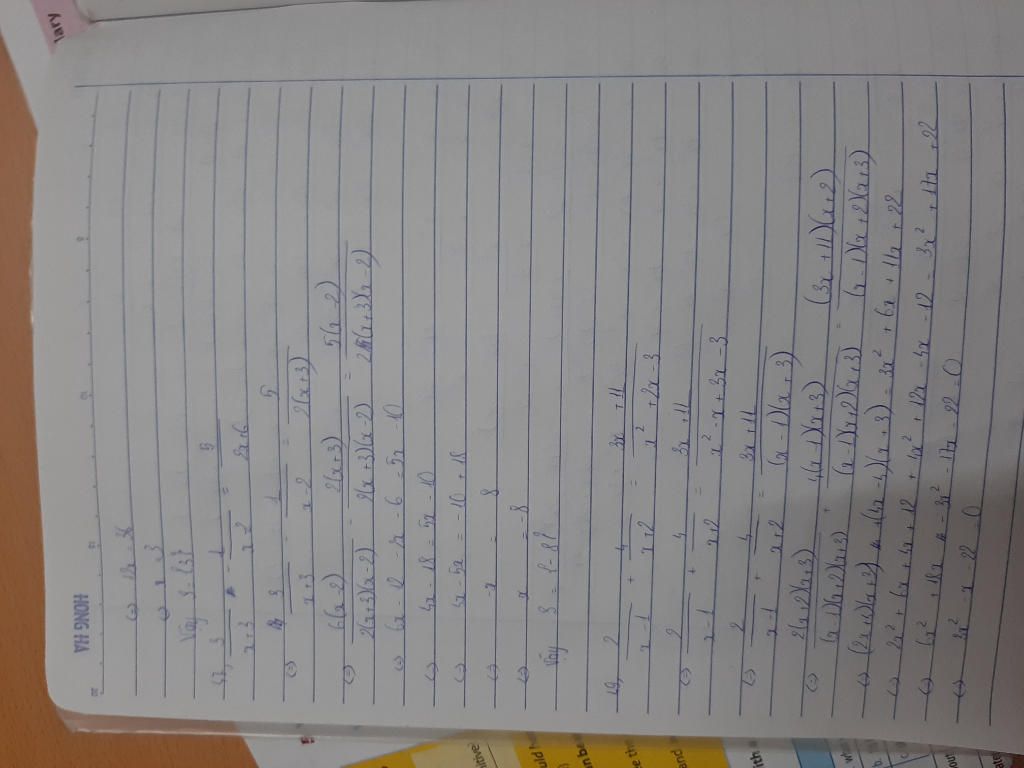 HONG HA
(=) 12x = 36
(=) x = 3
Vậy S = {3}
17, 3/(x+3) - 1/(x-2) = 5/(2x+6)
(=) 3/(x+3) - 1/(x-2) = 5/(2(x+3))
(=) 6(x-2)/(2(x+3)(x-2)) - 2(x+3)/(2(x+3)(x-2)) = 5(x-2)/(2(x+3)(x-2))
(=) 6x - 12 - 2x - 6 = 5x - 10
(=) 4x - 18 = 5x - 10
(=) 4x - 5x = -10 + 18
(=) -x = 8
(=) x = -8
Vậy S = {-8}
19, 2/(x-1) + 4/(x+2) = (3x+11)/(x² + 2x - 3)
(=) 2/(x-1) + 4/(x+2) = (3x+11)/(x² - x + 3x - 3)
(=) 2/(x-1) + 4/(x+2) = (3x+11)/((x-1)(x+3))
(=) 2(x+2)(x+3)/((x-1)(x+2)(x+3)) + 4(x-1)(x+3)/((x-1)(x+2)(x+3)) = (3x+11)(x+2)/((x-1)(x+2)(x+3))
(=) (2x+4)(x+3) + (4x-4)(x+3) = 3x² + 6x + 11x + 22
(=) 2x² + 6x + 4x + 12 + 4x² + 12x - 4x - 12 = 3x² + 17x + 22
(=) 6x² + 18x - 3x² - 17x - 22 = 0
(=) 3x² - x - 22 = 0